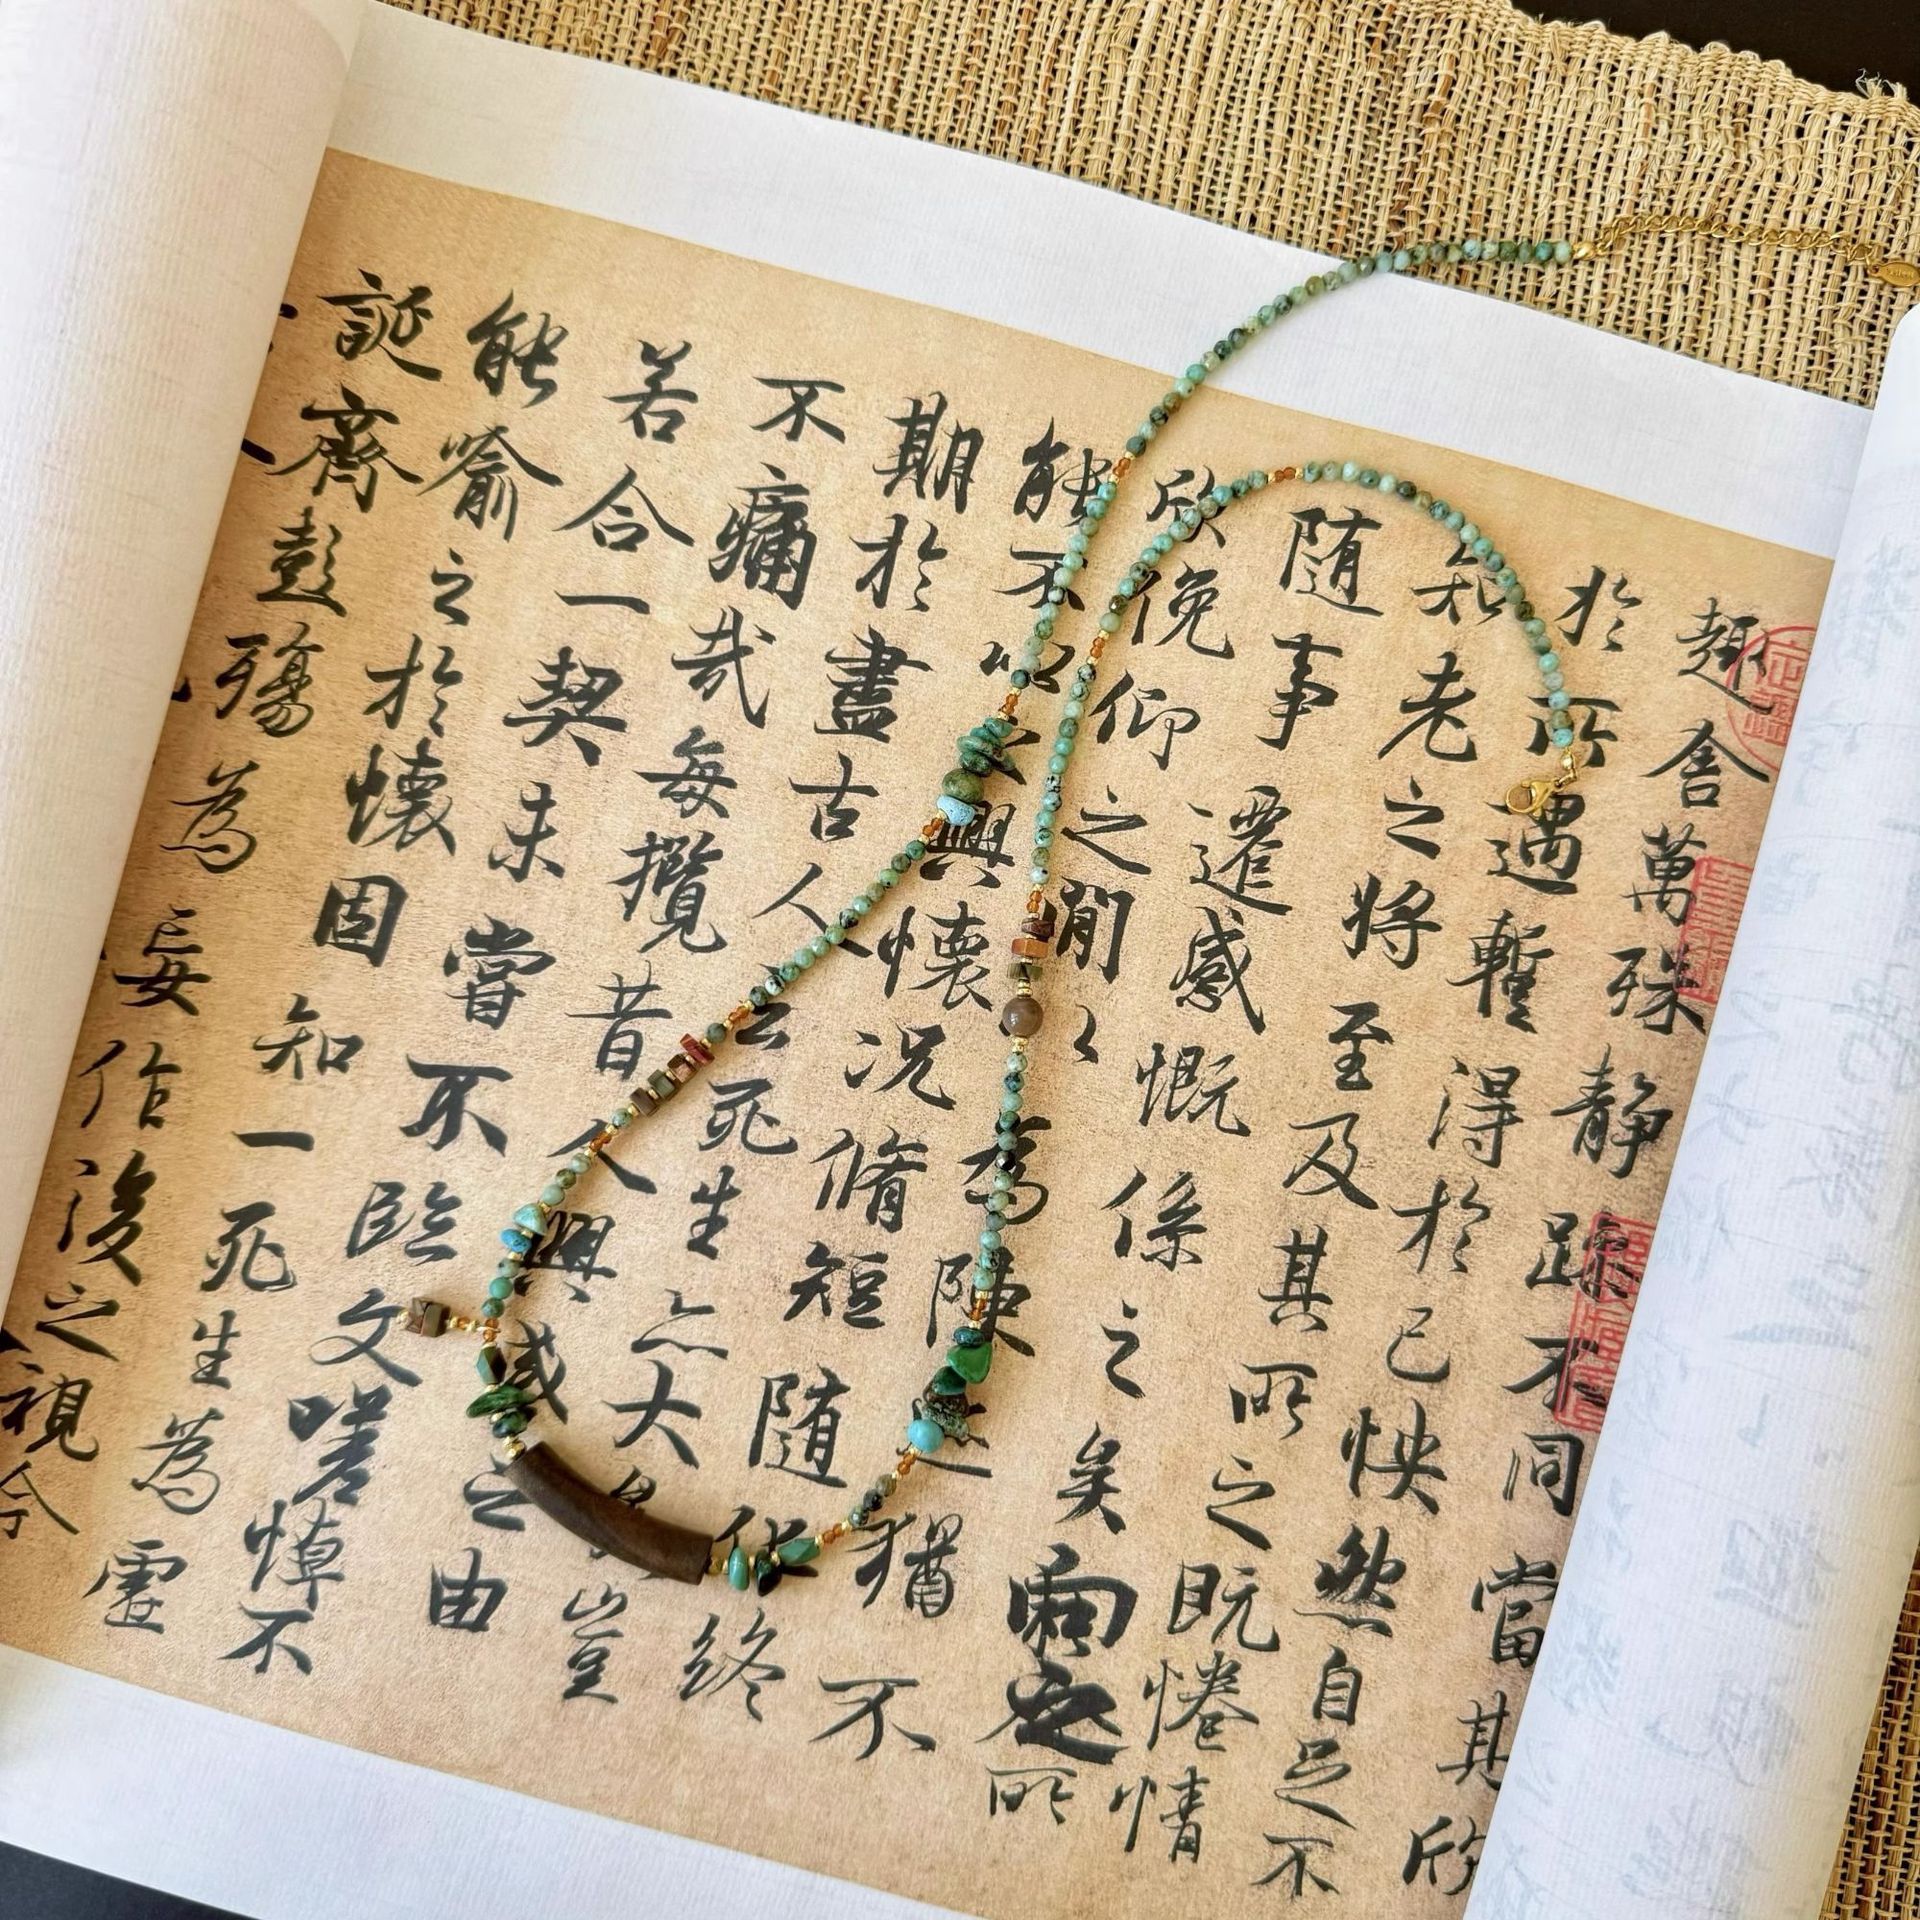 趣舍萬殊静躁不同當其欣
於所遇暫得於己怏然自足不
知老之將至及其所之既惓情
随事遷感慨係之矣向之所
欣俛仰之閒以為陳迹猶不
能不以之興懷況脩短随化終
期於盡古人云死生亦大矣豈
不痛哉每攬昔人興感之由
若合一契未嘗不臨文嗟悼不
能喻之於懷固知一死生為虚
誕齊彭殤為妄作後之視今